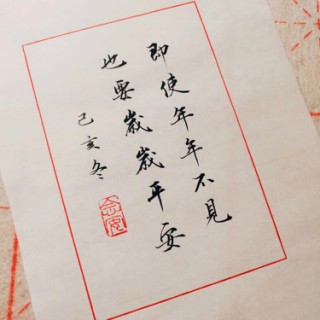 即使年年不見
也要歲歲平安
己亥冬